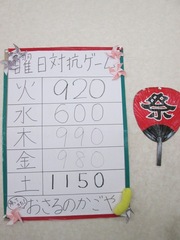 曜日対抗ゲーム
火 920
水 600
木 990
金 980
土 1150
おさるのかごや
祭